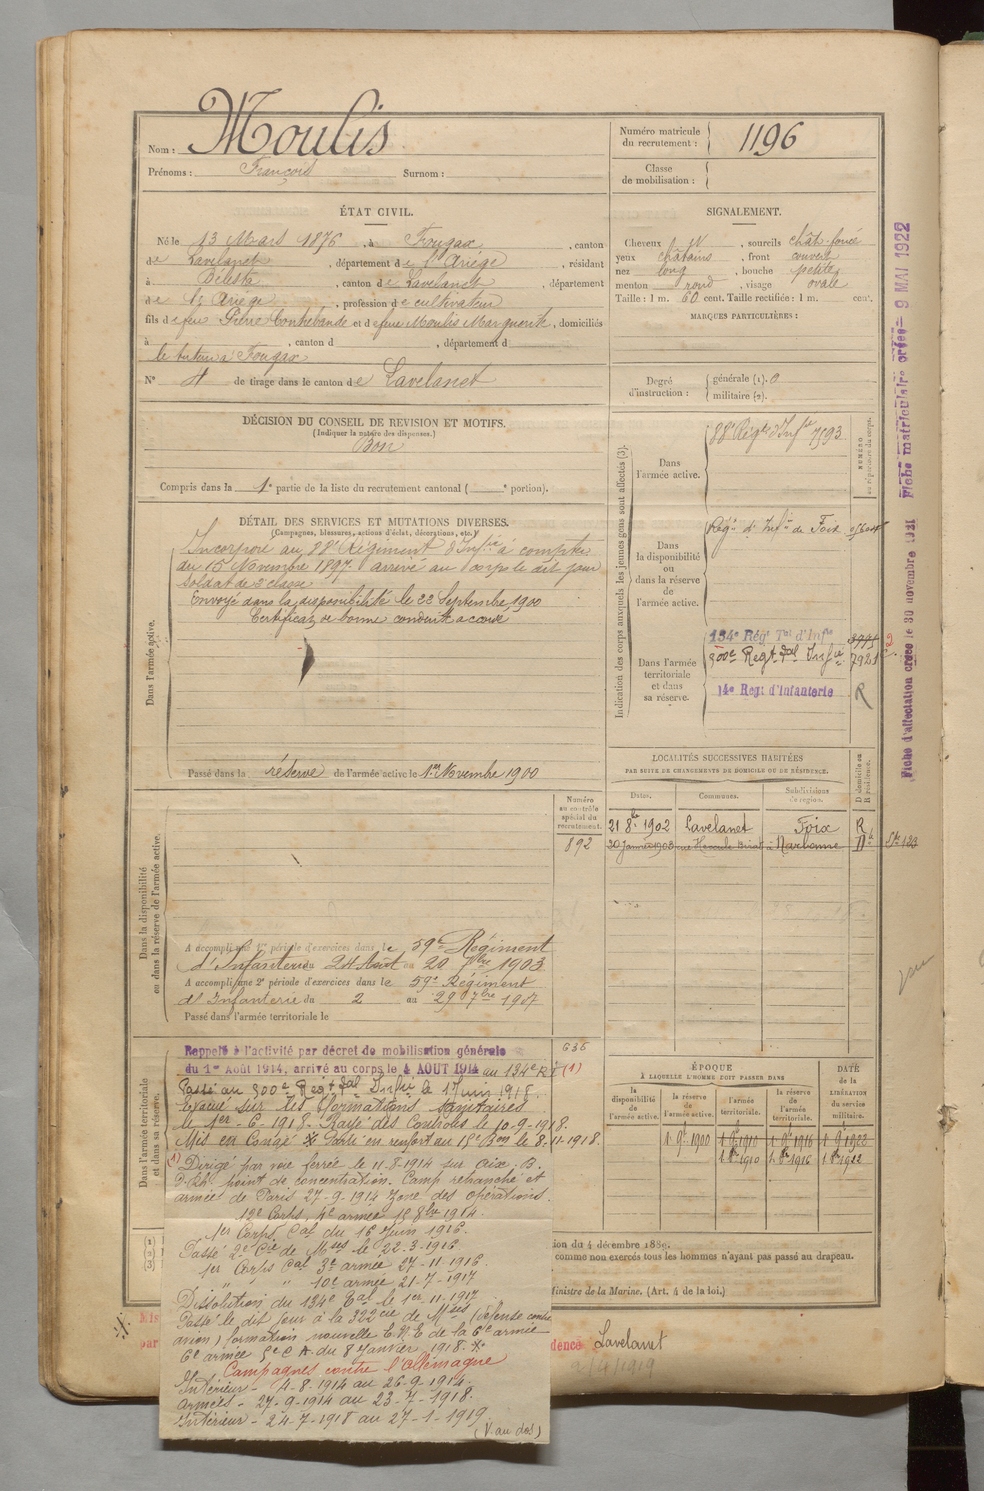 Nom : Moulis
Prénoms : François Surnom :
Numéro matricule du recrutement : 1196
Classe de mobilisation :
ÉTAT CIVIL.
Né le 13 Mars 1876, à Fougax, canton
de Lavelanet, département de l'Ariège, résidant
à Bélesta, canton de Lavelanet, département
de l'Ariège, profession de cultivateur
fils de feu Pierre Contrebande et de feue Moulis Marguerite, domiciliés
à , canton d , département d
le tuteur à Fougax
N° 4 de tirage dans le canton de Lavelanet
SIGNALEMENT.
Cheveux N, sourcils chât. foncé
yeux châtains, front couvert
nez long, bouche petite
menton rond, visage ovale
Taille : 1 m. 60 cent. Taille rectifiée : 1 m. cent.
MARQUES PARTICULIÈRES :
Degré d'instruction : générale (1). 0
militaire (2).
DÉCISION DU CONSEIL DE REVISION ET MOTIFS.
(Indiquer la nature des dispenses.)
Bon
Compris dans la 1e partie de la liste du recrutement cantonal ( e portion).
DÉTAIL DES SERVICES ET MUTATIONS DIVERSES.
(Campagnes, blessures, actions d'éclat, décorations, etc.)
Dans l'armée active.
Incorporé au 88e Régiment d'Infie à compter
du 15 Novembre 1897 arrivé au Corps le dit jour
Soldat de 2e classe
Envoyé dans la disponibilité le 22 Septembre 1900
Certificat de bonne conduite accordé
Passé dans la réserve de l'armée active le 1er Novembre 1900
Indication des corps auxquels les jeunes gens sont affectés (3).
NUMÉRO au répertoire du corps.
Dans l'armée active.
88e Régt d'Infie 7593
Dans la disponibilité ou dans la réserve de l'armée active.
Régt d'Infie de Foix
Dans l'armée territoriale et dans sa réserve.
134e Régt Tal d'Infie 3995
500e Regt Tal Infie 7921
14e Regt d'Infanterie R
LOCALITÉS SUCCESSIVES HABITÉES
PAR SUITE DE CHANGEMENTS DE DOMICILE OU DE RÉSIDENCE.
Dates. Communes. Subdivisions de région. D domicile ou R résidence.
21 8bre 1902 Lavelanet Foix R
20 Janvier 1903 Narbonne
Dans la disponibilité ou dans la réserve de l'armée active.
Numéro au contrôle spécial du recrutement.
892
A accompli une 1re période d'exercices dans le 59e Régiment
d'Infanterie du 24 Août au 20 7bre 1903
A accompli une 2e période d'exercices dans le 59e Régiment
d'Infanterie du 2 au 29 7bre 1907
Passé dans l'armée territoriale le
Dans l'armée territoriale et dans sa réserve.
636
Rappelé à l'activité par décret de mobilisation générale
du 1er Août 1914, arrivé au corps le 4 AOUT 1914 au 134e R I (1)
Passé au 500e Regt Tal Infie le 1 Juin 1918.
Evacué sur les formations sanitaires
le 1er-6-1918. Rayé des Contrôles le 10-9-1918.
Mis en Congé * Parti en renfort au 15e Bon le 8-11-1918.
(1) Dirigé par voie ferrée le 11-8-1914 sur Aix. B.
d. Rh. point de concentration. Camp retranché et
armées de Paris 27-9-1914 Zone des opérations.
12e Corps, 4e armée 15 8bre 1914.
1er Corps Cal du 16 Juin 1916.
Passé 2e Cie de Mses le 22-3-1916
1er Corps Cal 3e armée 27-11-1916.
" " " 10e armée 21-7-1917
Dissolution du 134e Tal le 1er-11-1917
Passé le dit jour à la 322 Cie de Mses (défense contre
avion) formation nouvelle E.N.E de la 6e armée
6e armée 5e C A. du 8 Janvier 1918. *
Campagnes contre l'Allemagne
Intérieur - 4-8-1914 au 26-9-1914.
Armées - 27-9-1914 au 23-7-1918.
Intérieur - 24-7-1918 au 27-1-1919
(V. au dos)
ÉPOQUE
À LAQUELLE L'HOMME DOIT PASSER DANS
la disponibilité de l'armée active. la réserve de l'armée active. l'armée territoriale. la réserve de l'armée territoriale.
DATE DE LA LIBÉRATION DU SERVICE MILITAIRE.
1 9bre 1900 1 9bre 1910 1 9bre 1916 1 9bre 1922
1 8bre 1910 1 8bre 1916 1 8bre 1922
ion du 4 décembre 1889.
comme non exercés tous les hommes n'ayant pas passé au drapeau.
Ministre de la Marine. (Art. 4 de la loi.)
(1)
(2)
(3)
Mis
par
dence Lavelanet
2/4/1919
Fiche d'affectation créée le 30 novembre 1921 Fiche matriculaire créée - 9 MAI 1922